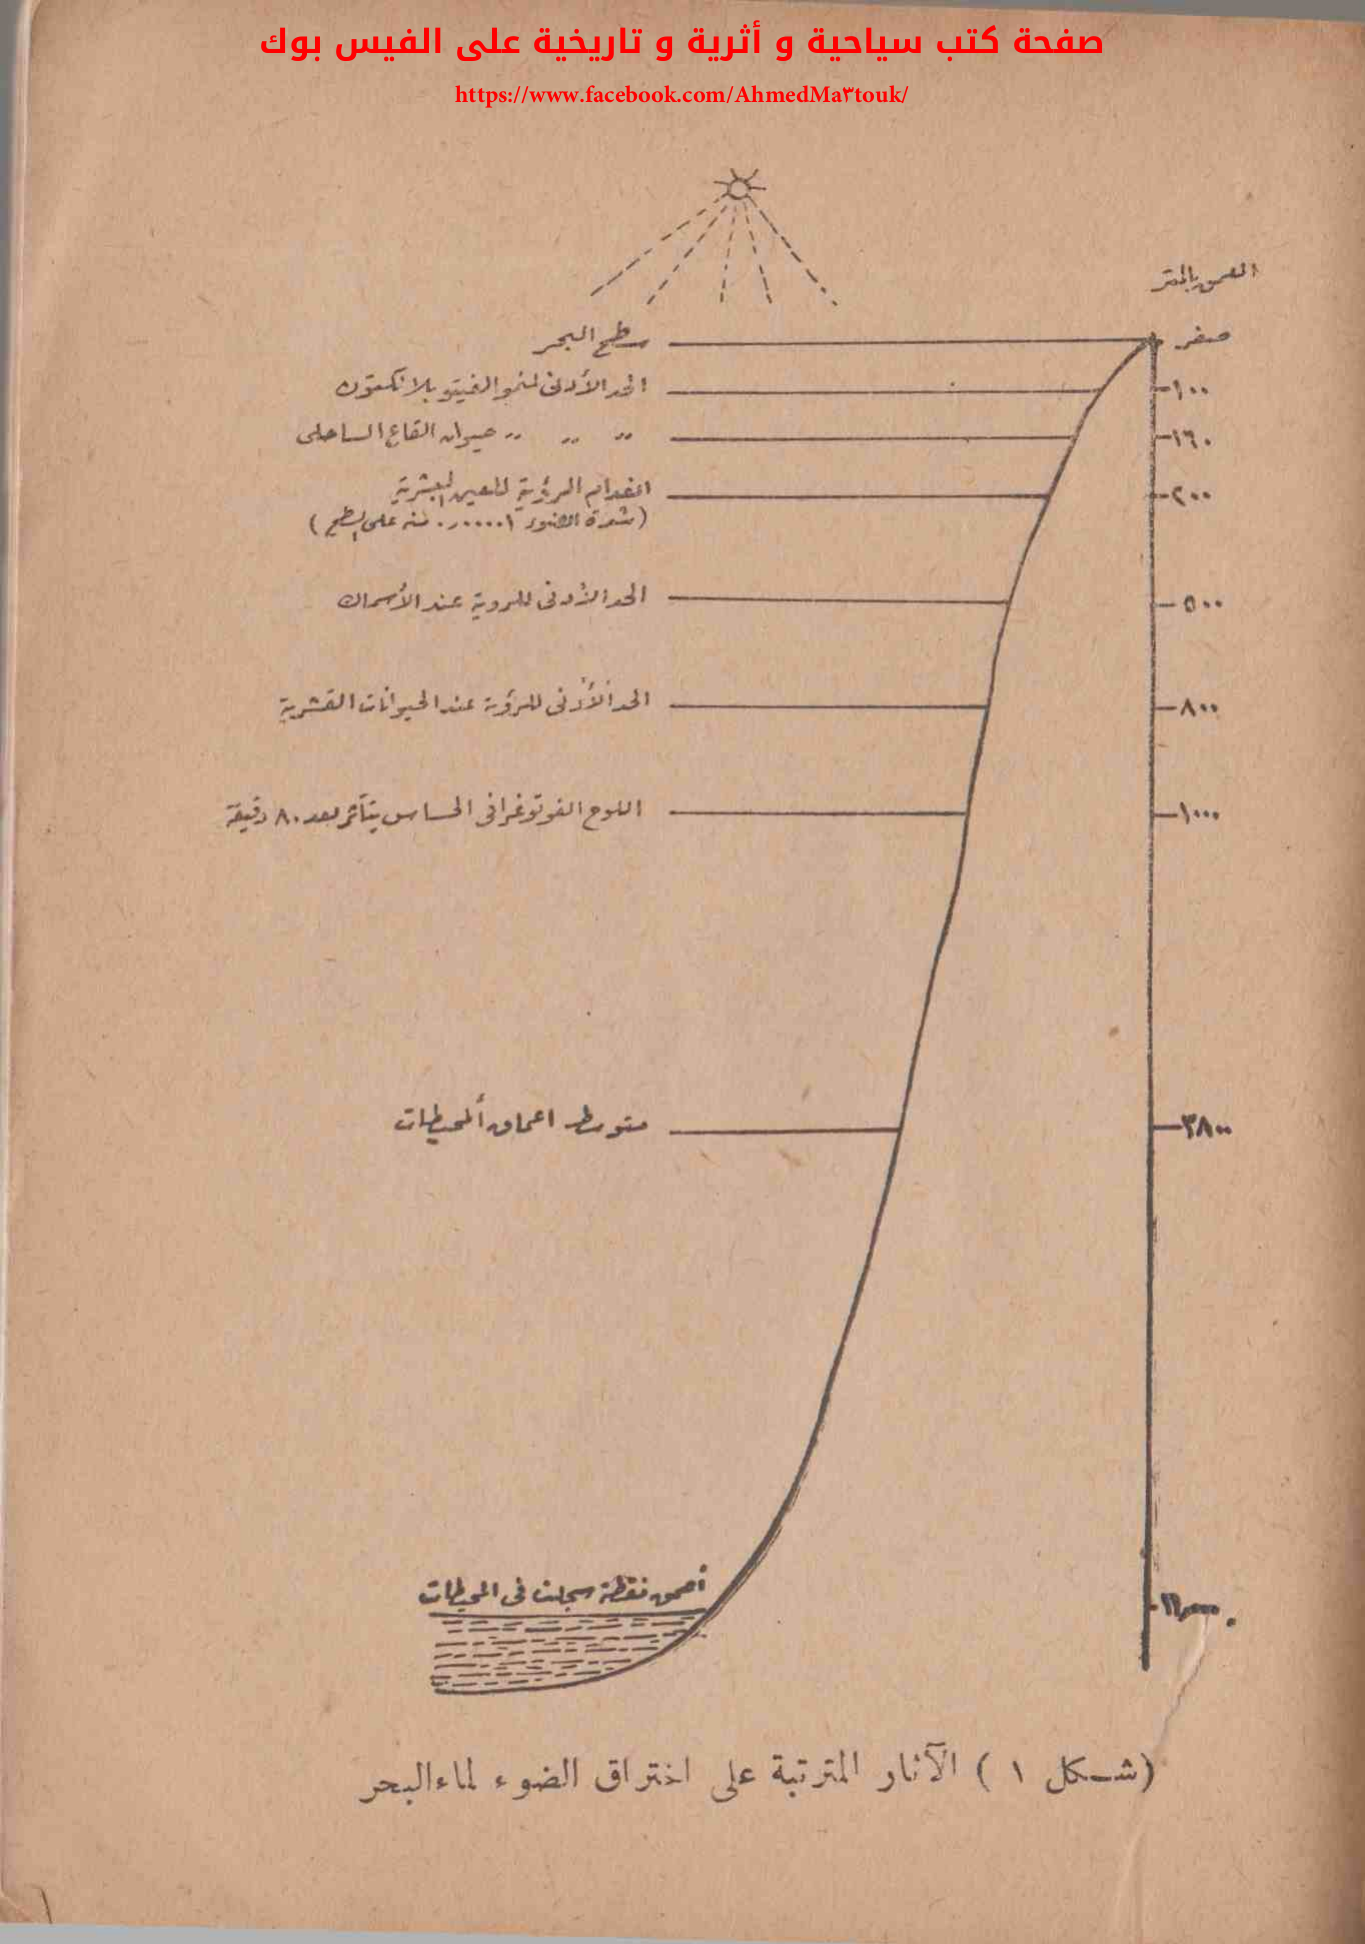 صفحة كتب سياحية و أثرية و تاريخية على الفيس بوك
https://www.facebook.com/AhmedMa٣touk/
العمق بالمتر
صفر سطح البحر
١٠٠ الحد الأدنى لنمو الفيتو بلانكتون
١٦٠ ,, ,, ,, حيوان القاع الساحلى
٢٠٠ انعدام الرؤية للعين البشرية
(شدة الضوء ٠٫٠٠٠٠١ منه على السطح)
٥٠٠ الحد الأدنى للروية عند الأسماك
٨٠٠ الحد الأدنى للرؤية عند الحيوانات القشرية
١٠٠٠ اللوح الفوتوغرافى الحساس يتأثر بعد ٨٠ دقيقة
٣٨٠٠ متوسط اعماق المحيطات
أعمق نقطة سجلت فى المحيطات
(شكل ١) الآثار المترتبة على اختراق الضوء لماء البحر